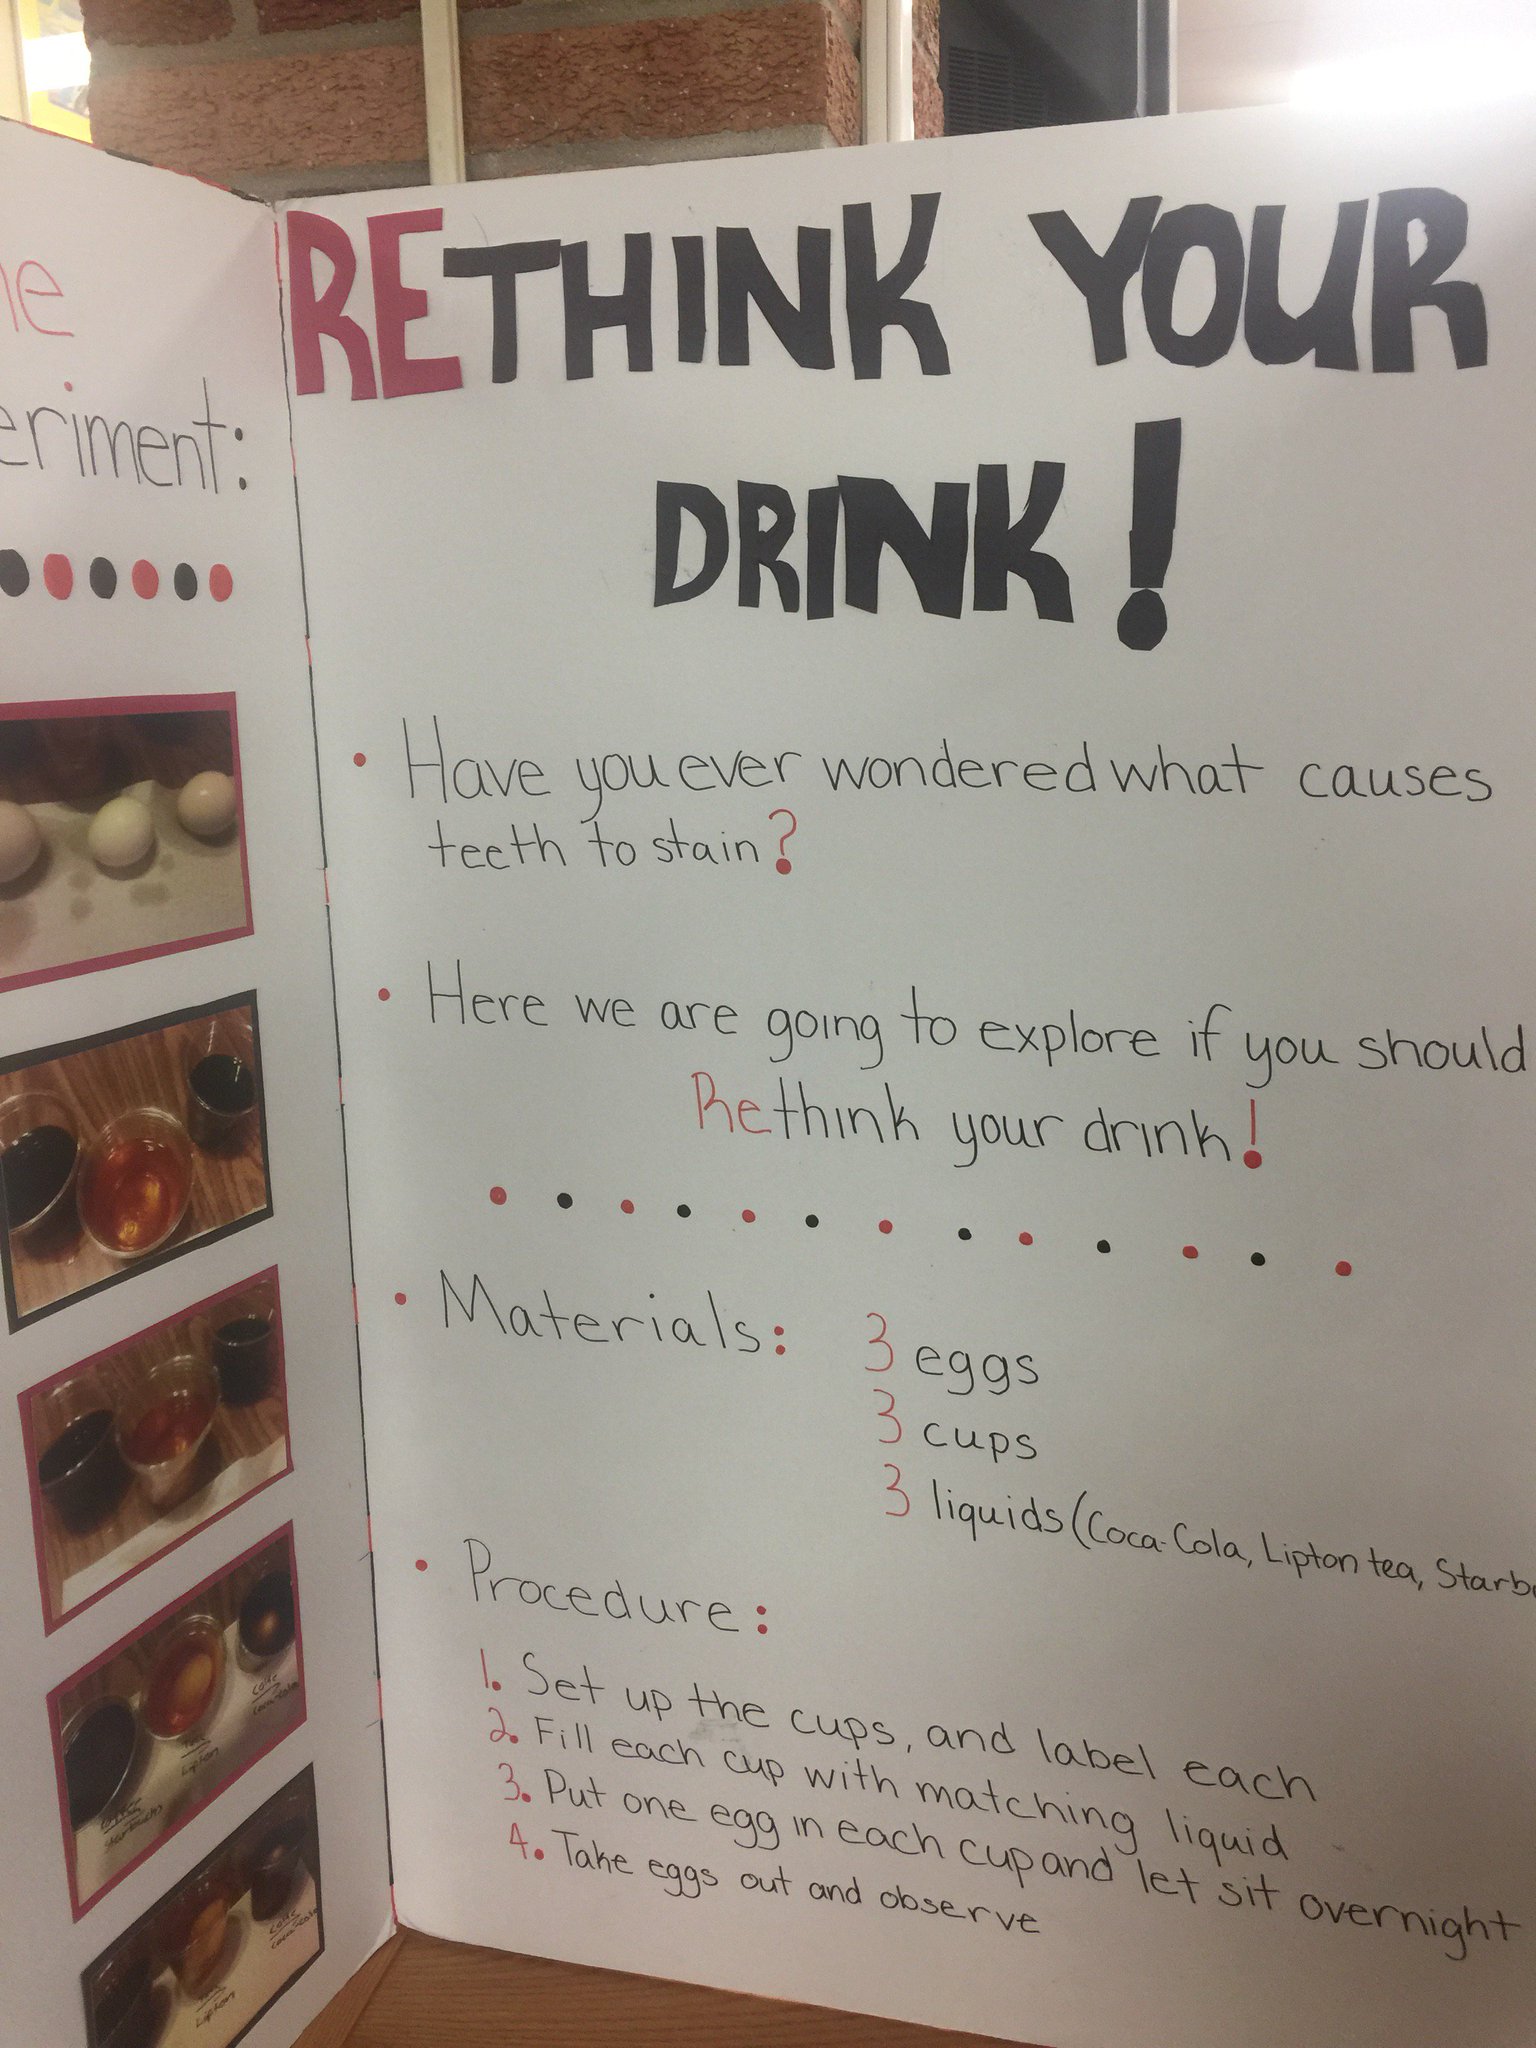 RETHINK YOUR
DRINK!
• Have you ever wondered what causes
teeth to stain?
• Here we are going to explore if you should
Rethink your drink!
• Materials: 3 eggs
3 cups
3 liquids (Coca-Cola, Lipton tea, Starb
• Procedure:
1. Set up the cups, and label each
2. Fill each cup with matching liquid
3. Put one egg in each cup and let sit overnight
4. Take eggs out and observe
he
eriment:
Coke
Coca-Cola
Lipton
Starbucks
Coke
Coca-Cola
Lipton